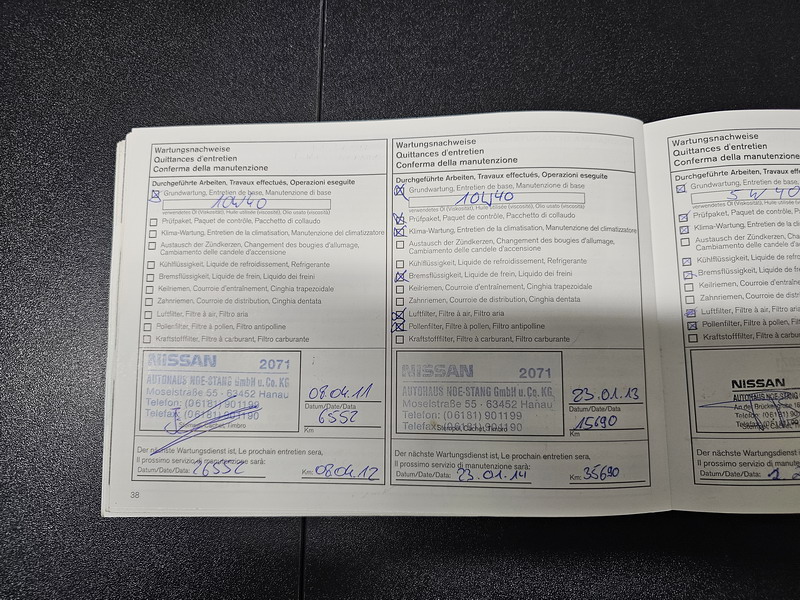 Wartungsnachweise
Quittances d'entretien
Conferma della manutenzione
Durchgeführte Arbeiten, Travaux effectués, Operazioni eseguite
Grundwartung, Entretien de base, Manutenzione di base
10W40
verwendetes Öl (Viskosität), Huile utilisée (viscosité), Olio usato (viscosità)
Prüfpaket, Paquet de contrôle, Pacchetto di collaudo
Klima-Wartung, Entretien de la climatisation, Manutenzione del climatizzatore
Austausch der Zündkerzen, Changement des bougies d'allumage,
Cambiamento delle candele d'accensione
Kühlflüssigkeit, Liquide de refroidissement, Refrigerante
Bremsflüssigkeit, Liquide de frein, Liquido dei freini
Keilriemen, Courroie d'entraînement, Cinghia trapezoidale
Zahnriemen, Courroie de distribution, Cinghia dentata
Luftfilter, Filtre à air, Filtro aria
Pollenfilter, Filtre à pollen, Filtro antipolline
Kraftstofffilter, Filtre à carburant, Filtro carburante
NISSAN 2071
AUTOHAUS NOE-STANG GmbH u. Co. KG
Moselstraße 55 - 63452 Hanau
Telefon: (06181) 901199
Telefax:
08.04.11
Datum/Date/Data
6552
Km
Der nächste Wartungsdienst ist, Le prochain entretien sera,
Il prossimo servizio di manutenzione sarà:
Datum/Date/Data: 26552 Km: 08.04.12
38
Wartungsnachweise
Quittances d'entretien
Conferma della manutenzione
Durchgeführte Arbeiten, Travaux effectués, Operazioni eseguite
Grundwartung, Entretien de base, Manutenzione di base
10W40
verwendetes Öl (Viskosität), Huile utilisée (viscosité), Olio usato (viscosità)
Prüfpaket, Paquet de contrôle, Pacchetto di collaudo
Klima-Wartung, Entretien de la climatisation, Manutenzione del climatizzatore
Austausch der Zündkerzen, Changement des bougies d'allumage,
Cambiamento delle candele d'accensione
Kühlflüssigkeit, Liquide de refroidissement, Refrigerante
Bremsflüssigkeit, Liquide de frein, Liquido dei freini
Keilriemen, Courroie d'entraînement, Cinghia trapezoidale
Zahnriemen, Courroie de distribution, Cinghia dentata
Luftfilter, Filtre à air, Filtro aria
Pollenfilter, Filtre à pollen, Filtro antipolline
Kraftstofffilter, Filtre à carburant, Filtro carburante
NISSAN 2071
AUTOHAUS NOE-STANG GmbH u. Co. KG
Moselstraße 55 - 63452 Hanau
Telefon: (06181) 901199
Telefax: (06181) 901190
23.01.13
Datum/Date/Data
15690
Km
Der nächste Wartungsdienst ist, Le prochain entretien sera,
Il prossimo servizio di manutenzione sarà:
Datum/Date/Data: 23.01.14 Km: 35690
Wartungsnachweise
Quittances d'entretien
Conferma della manutenzione
Durchgeführte Arbeiten, Travaux
Grundwartung, Entretien de base
5W40
verwendetes Öl (Viskosität), Huile utilisée
Prüfpaket, Paquet de contrôle
Klima-Wartung, Entretien de la
Austausch der Zündkerzen
Cambiamento delle candele
Kühlflüssigkeit, Liquide de
Bremsflüssigkeit, Liquide de
Keilriemen, Courroie
Zahnriemen, Courroie
Luftfilter, Filtre à air
Pollenfilter, Filtre à pollen
Kraftstofffilter, Filtre
NISSAN
AUTOHAUS NOE-STANG
Der nächste Wartungsdienst
Il prossimo servizio di
Datum/Date/Data: